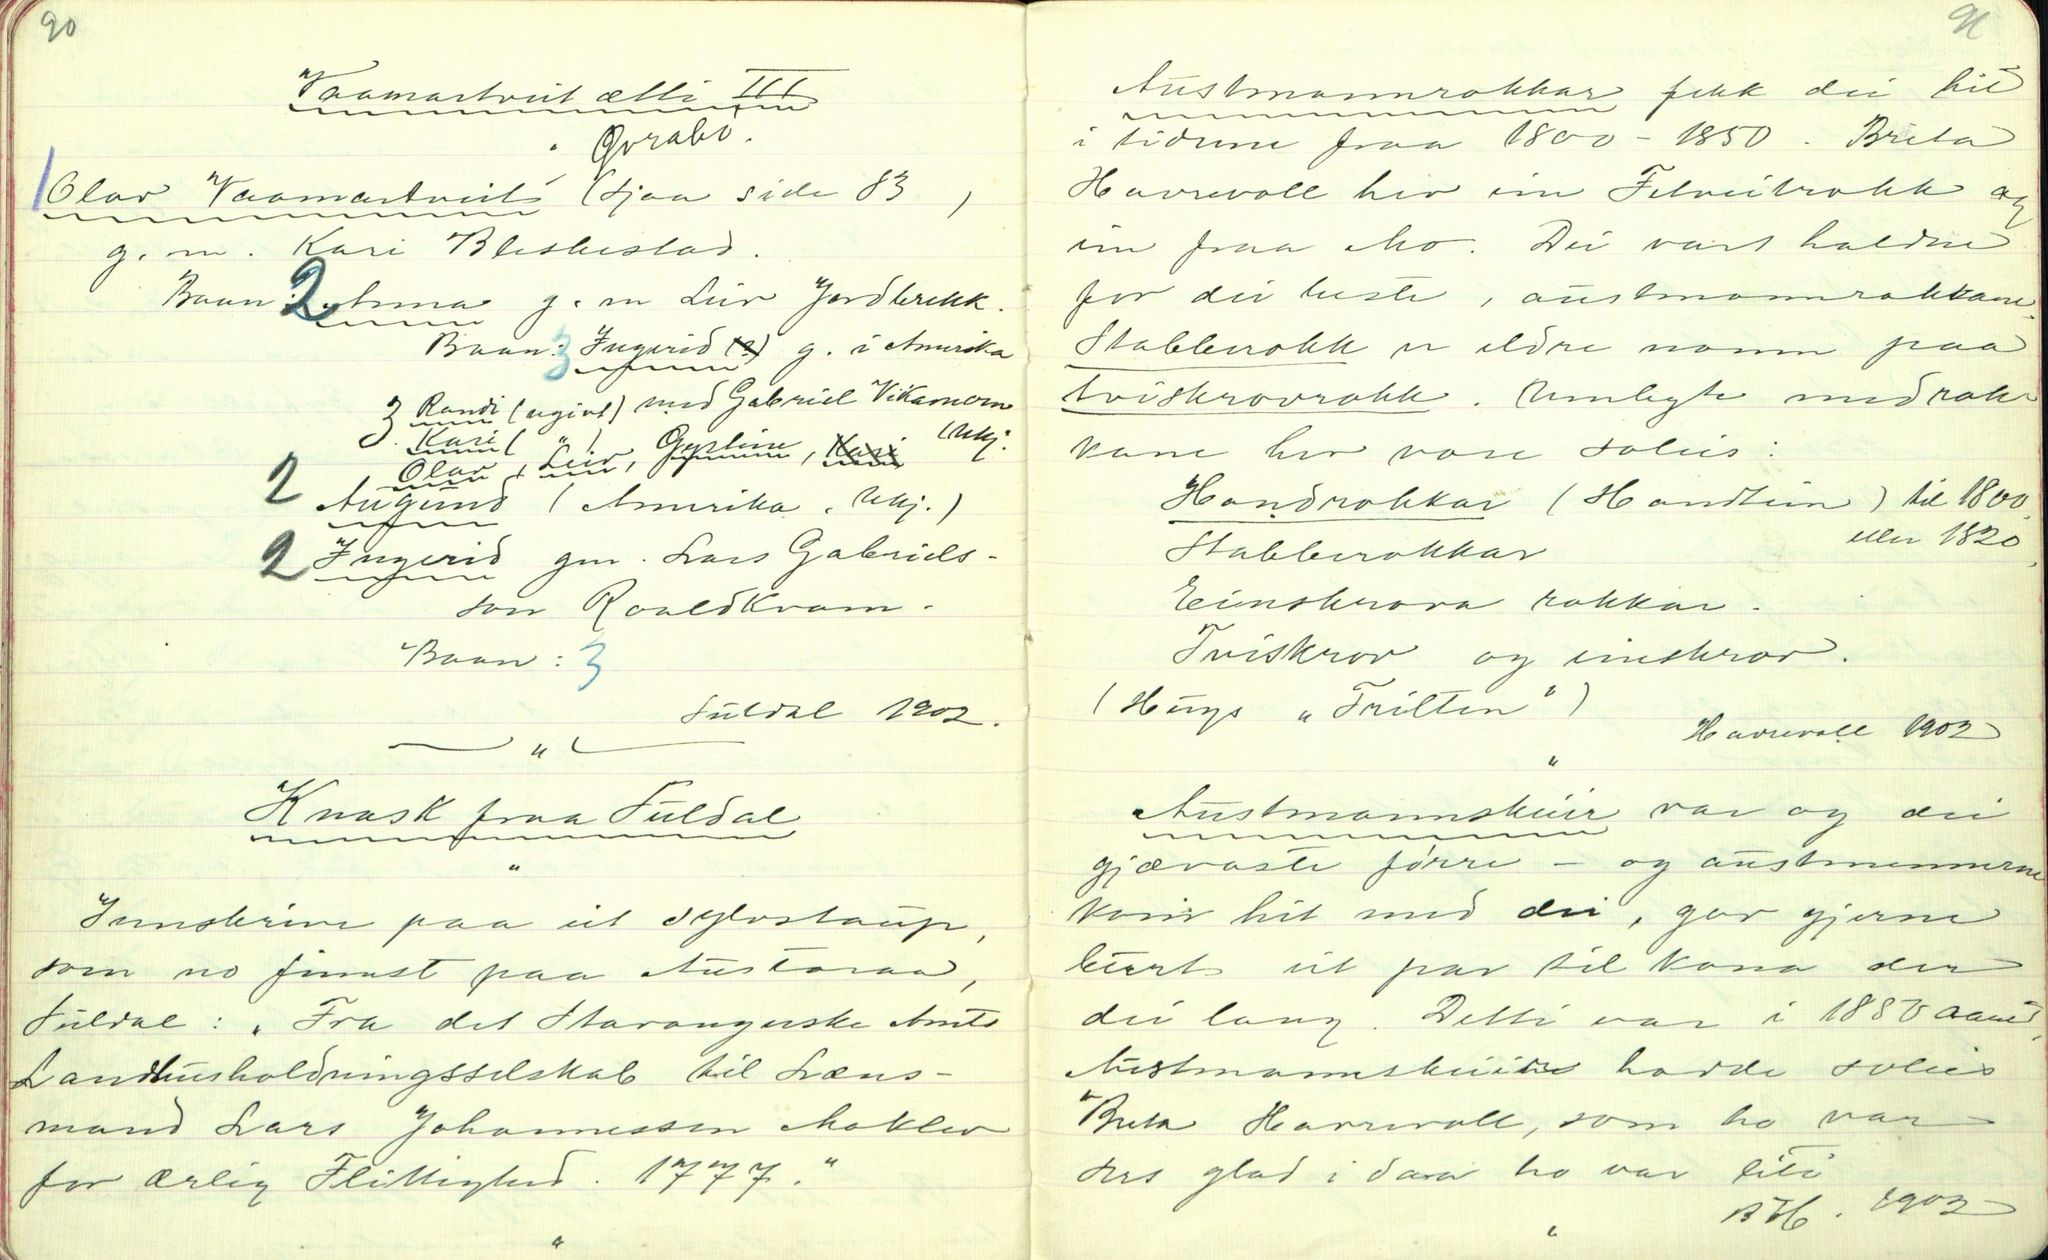 90
Vaamartveit ætti III
Qvrabö.
Olav Vaamartveit (sjaa side 83)
g. m. Kari Bleskestad.
Baan: 2 Anna g. m Leiv Jordbrekk.
Baan: 3 Ingerid (2) g. i Amerika
3 Randi (ugivt) med Gabriel Vikamoen
Kari ( " ) (Ukj.
Olav, Leiv, Gyrline, Kari
2 Augund (Amerika. Ukj.)
2 Ingerid gm. Lars Gabriels-
son Roaldkvam.
Baan: 3
Suldal 1902.
"
Knask fraa Suldal
"
Innskrive paa eit sylvstaup,
som no finnst paa Austaraa,
Suldal: „Fra det Stavangerske Amts
Landhusholdningsselskab til Læns-
mand Lars Johannessen Mokleiv
for ærlig Flittighed. 1777."
"
91
Austmannrokkar fekk dei hit
i tidune fraa 1800 - 1850. Breta
Havrevoll hev ein Felveitrokk og
ein fraa Mo. Dei vart haldne
for dei beste, austmannrokkane.
Stabberokk er eldre namn paa
tviskrovrokk. Umbyte med rok-
kane hev vore soleis:
Handrokkar (Handtein) til 1800,
eller 1820,
Stabberokkar
Einskrova rokkar.
Tviskrov og einskrov.
(Huys „Trilten")
Havrevoll 1902
"
Austmannskeir var og dei
gjævaste förre - og austmennerne
kom hit med dei, gav gjerne
burt eit par til kona der
dei laag. Detti var i 1850 aari,
Austmannskeiine hadde soleis
Breta Havrevoll, som ho var
so glad i daa ho var liti
BH. 1902
"